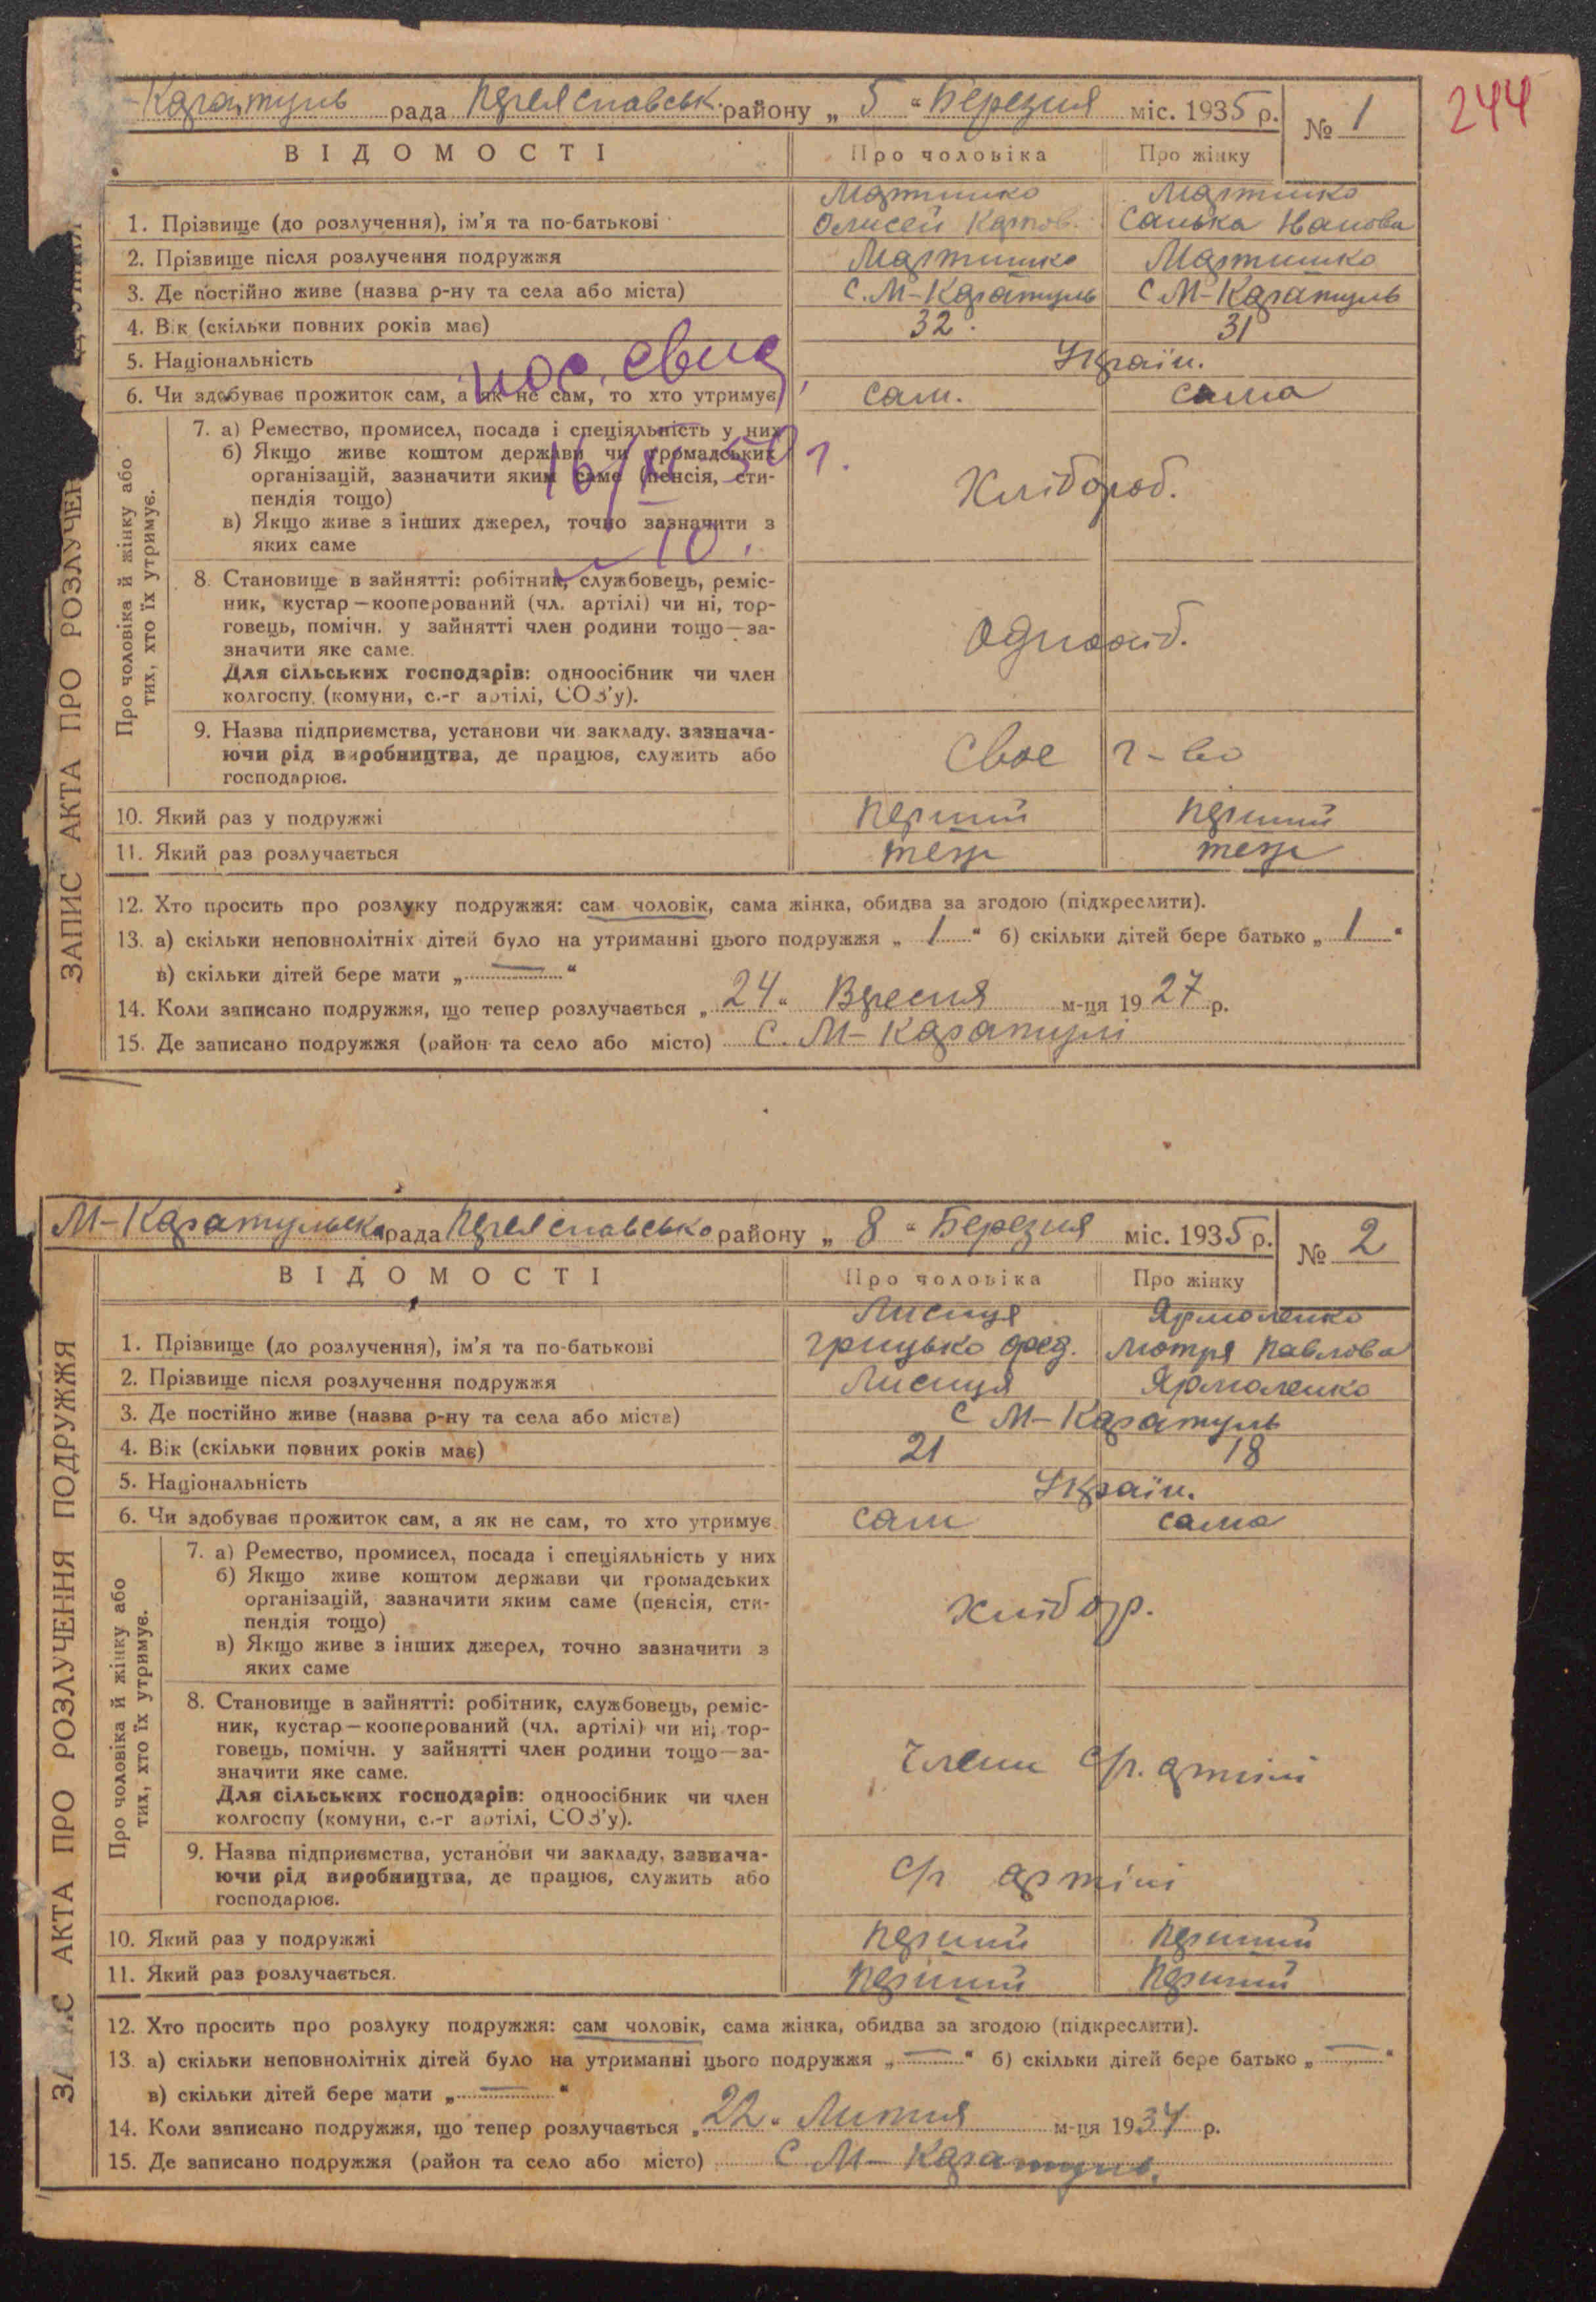 244
Каратуль рада Переяславськ. району „ 5 “ Березня міс. 1935 р. № 1
ВІДОМОСТІ Про чоловіка Про жінку
1. Прізвище (до розлучення), ім'я та по-батькові Мартишко Мартишко
Олисей Санька Иванова
2. Прізвище після розлучення подружжя Мартишко Мартишко
3. Де постійно живе (назва р-ну та села або міста) С. М-Каратуль С М-Каратуль
4. Вік (скільки повних років має) 32. 31
5. Національність Україн.
6. Чи здобуває прожиток сам, а як не сам, то хто утримує сам. сама
ЗАПИС АКТА ПРО РОЗЛУЧЕН
Про чоловіка й жінку або
тих, хто їх утримує.
7. а) Ремество, промисел, посада і спеціяльність у них
б) Якщо живе коштом держави чи громадських
організацій, зазначити яким саме (пенсія, сти-
пендія тощо)
в) Якщо живе з інших джерел, точно зазначити з
яких саме
Хлібороб.
8. Становище в зайнятті: робітник, службовець, реміс-
ник, кустар—кооперований (чл. артілі) чи ні, тор-
говець, помічн. у зайнятті член родини тощо—за-
значити яке саме.
Для сільських господарів: одноосібник чи член
колгоспу (комуни, с.-г артілі, СОЗ'у).
9. Назва підприємства, установи чи закладу, зазнача-
ючи рід виробництва, де працює, служить або
господарює.
Своє г-во
10. Який раз у подружжі перший перший
11. Який раз розлучається теж теж
12. Хто просить про розлуку подружжя: сам чоловік, сама жінка, обидва за згодою (підкреслити).
13. а) скільки неповнолітніх дітей було на утриманні цього подружжя „ 1 “ б) скільки дітей бере батько „ 1 “
в) скільки дітей бере мати „ — “
14. Коли записано подружжя, що тепер розлучається „ 24 “ Вересня м-ця 1927 р.
15. Де записано подружжя (район та село або місто) С. М-Каратулі
М-Каратульска рада Переяславсько району „ 8 “ Березня міс. 1935 р. № 2
ВІДОМОСТІ Про чоловіка Про жінку
1. Прізвище (до розлучення), ім'я та по-батькові Лисиця Ярмоленко
Грицько Фед. Мотря Павлова
2. Прізвище після розлучення подружжя Лисиця Ярмоленко
3. Де постійно живе (назва р-ну та села або міста) С М-Каратуль
4. Вік (скільки повних років має) 21 18
5. Національність Україн.
6. Чи здобуває прожиток сам, а як не сам, то хто утримує сам сама
АКТА ПРО РОЗЛУЧЕННЯ ПОДРУЖЖЯ
Про чоловіка й жінку або
тих, хто їх утримує.
7. а) Ремество, промисел, посада і спеціяльність у них
б) Якщо живе коштом держави чи громадських
організацій, зазначити яким саме (пенсія, сти-
пендія тощо)
в) Якщо живе з інших джерел, точно зазначити з
яких саме
Хлібор.
8. Становище в зайнятті: робітник, службовець, реміс-
ник, кустар—кооперований (чл. артілі) чи ні, тор-
говець, помічн. у зайнятті член родини тощо—за-
значити яке саме.
Для сільських господарів: одноосібник чи член
колгоспу (комуни, с.-г артілі, СОЗ'у).
Члени с/г. артілі
9. Назва підприємства, установи чи закладу, зазнача-
ючи рід виробництва, де працює, служить або
господарює.
с/г артілі
10. Який раз у подружжі перший перший
11. Який раз розлучається. перший перший
12. Хто просить про розлуку подружжя: сам чоловік, сама жінка, обидва за згодою (підкреслити).
13. а) скільки неповнолітніх дітей було на утриманні цього подружжя „ — “ б) скільки дітей бере батько „ — “
в) скільки дітей бере мати „ — “
14. Коли записано подружжя, що тепер розлучається „ 22 “ м-ця 1934 р.
15. Де записано подружжя (район та село або місто) С М-Каратуль.